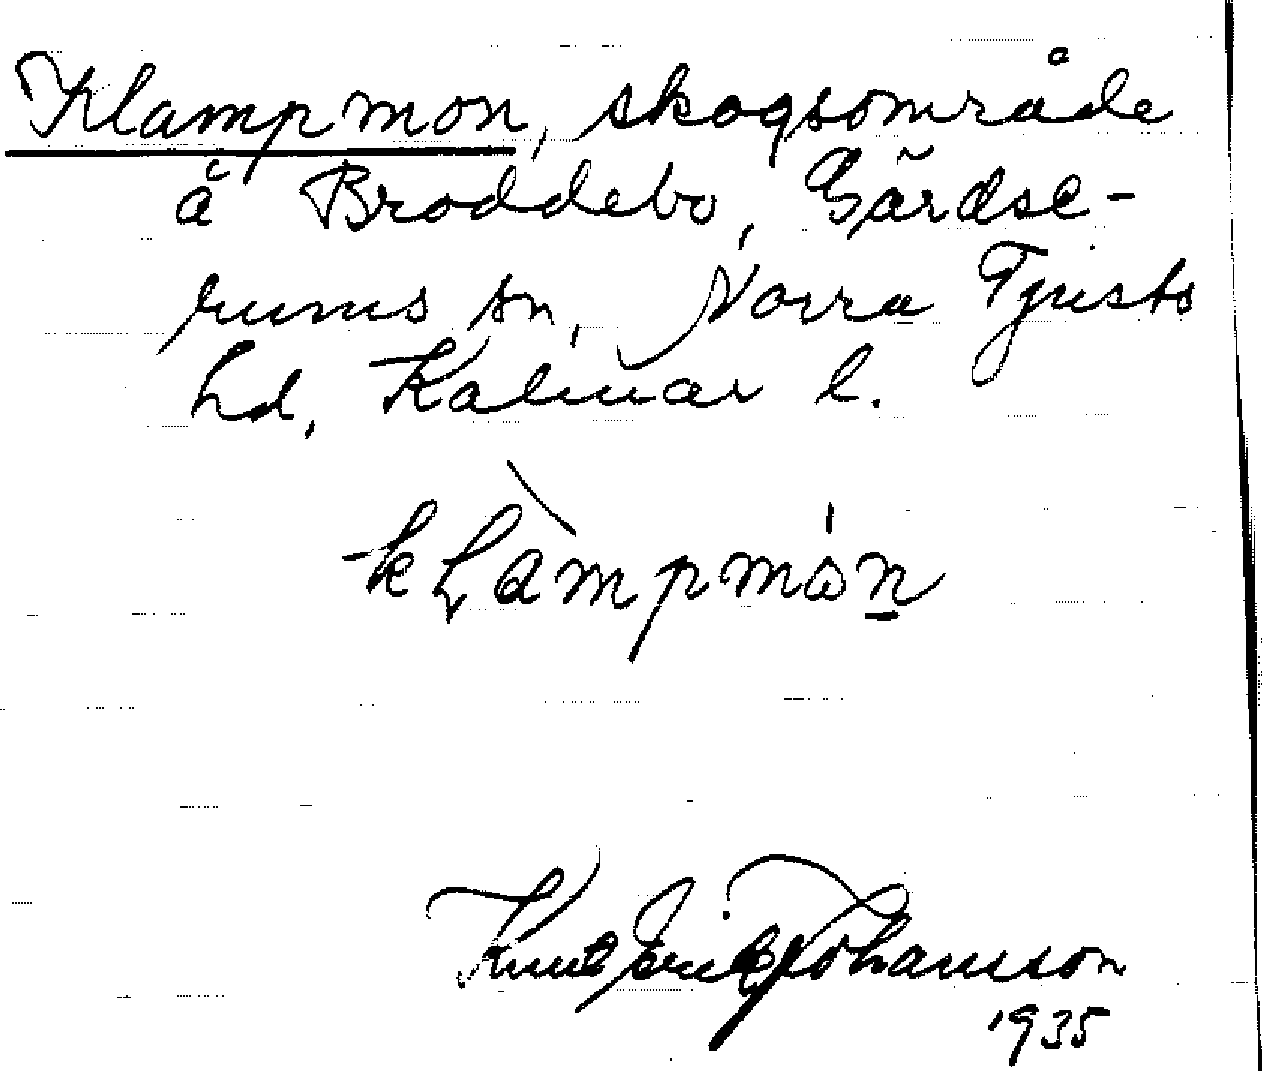 Klampmon, skogsområde
å Broddebo, Gärdse-
rums sn, Norra Tjusts
hd, Kalmar l.
klàmpmón
Knut Erik Johansson
1935